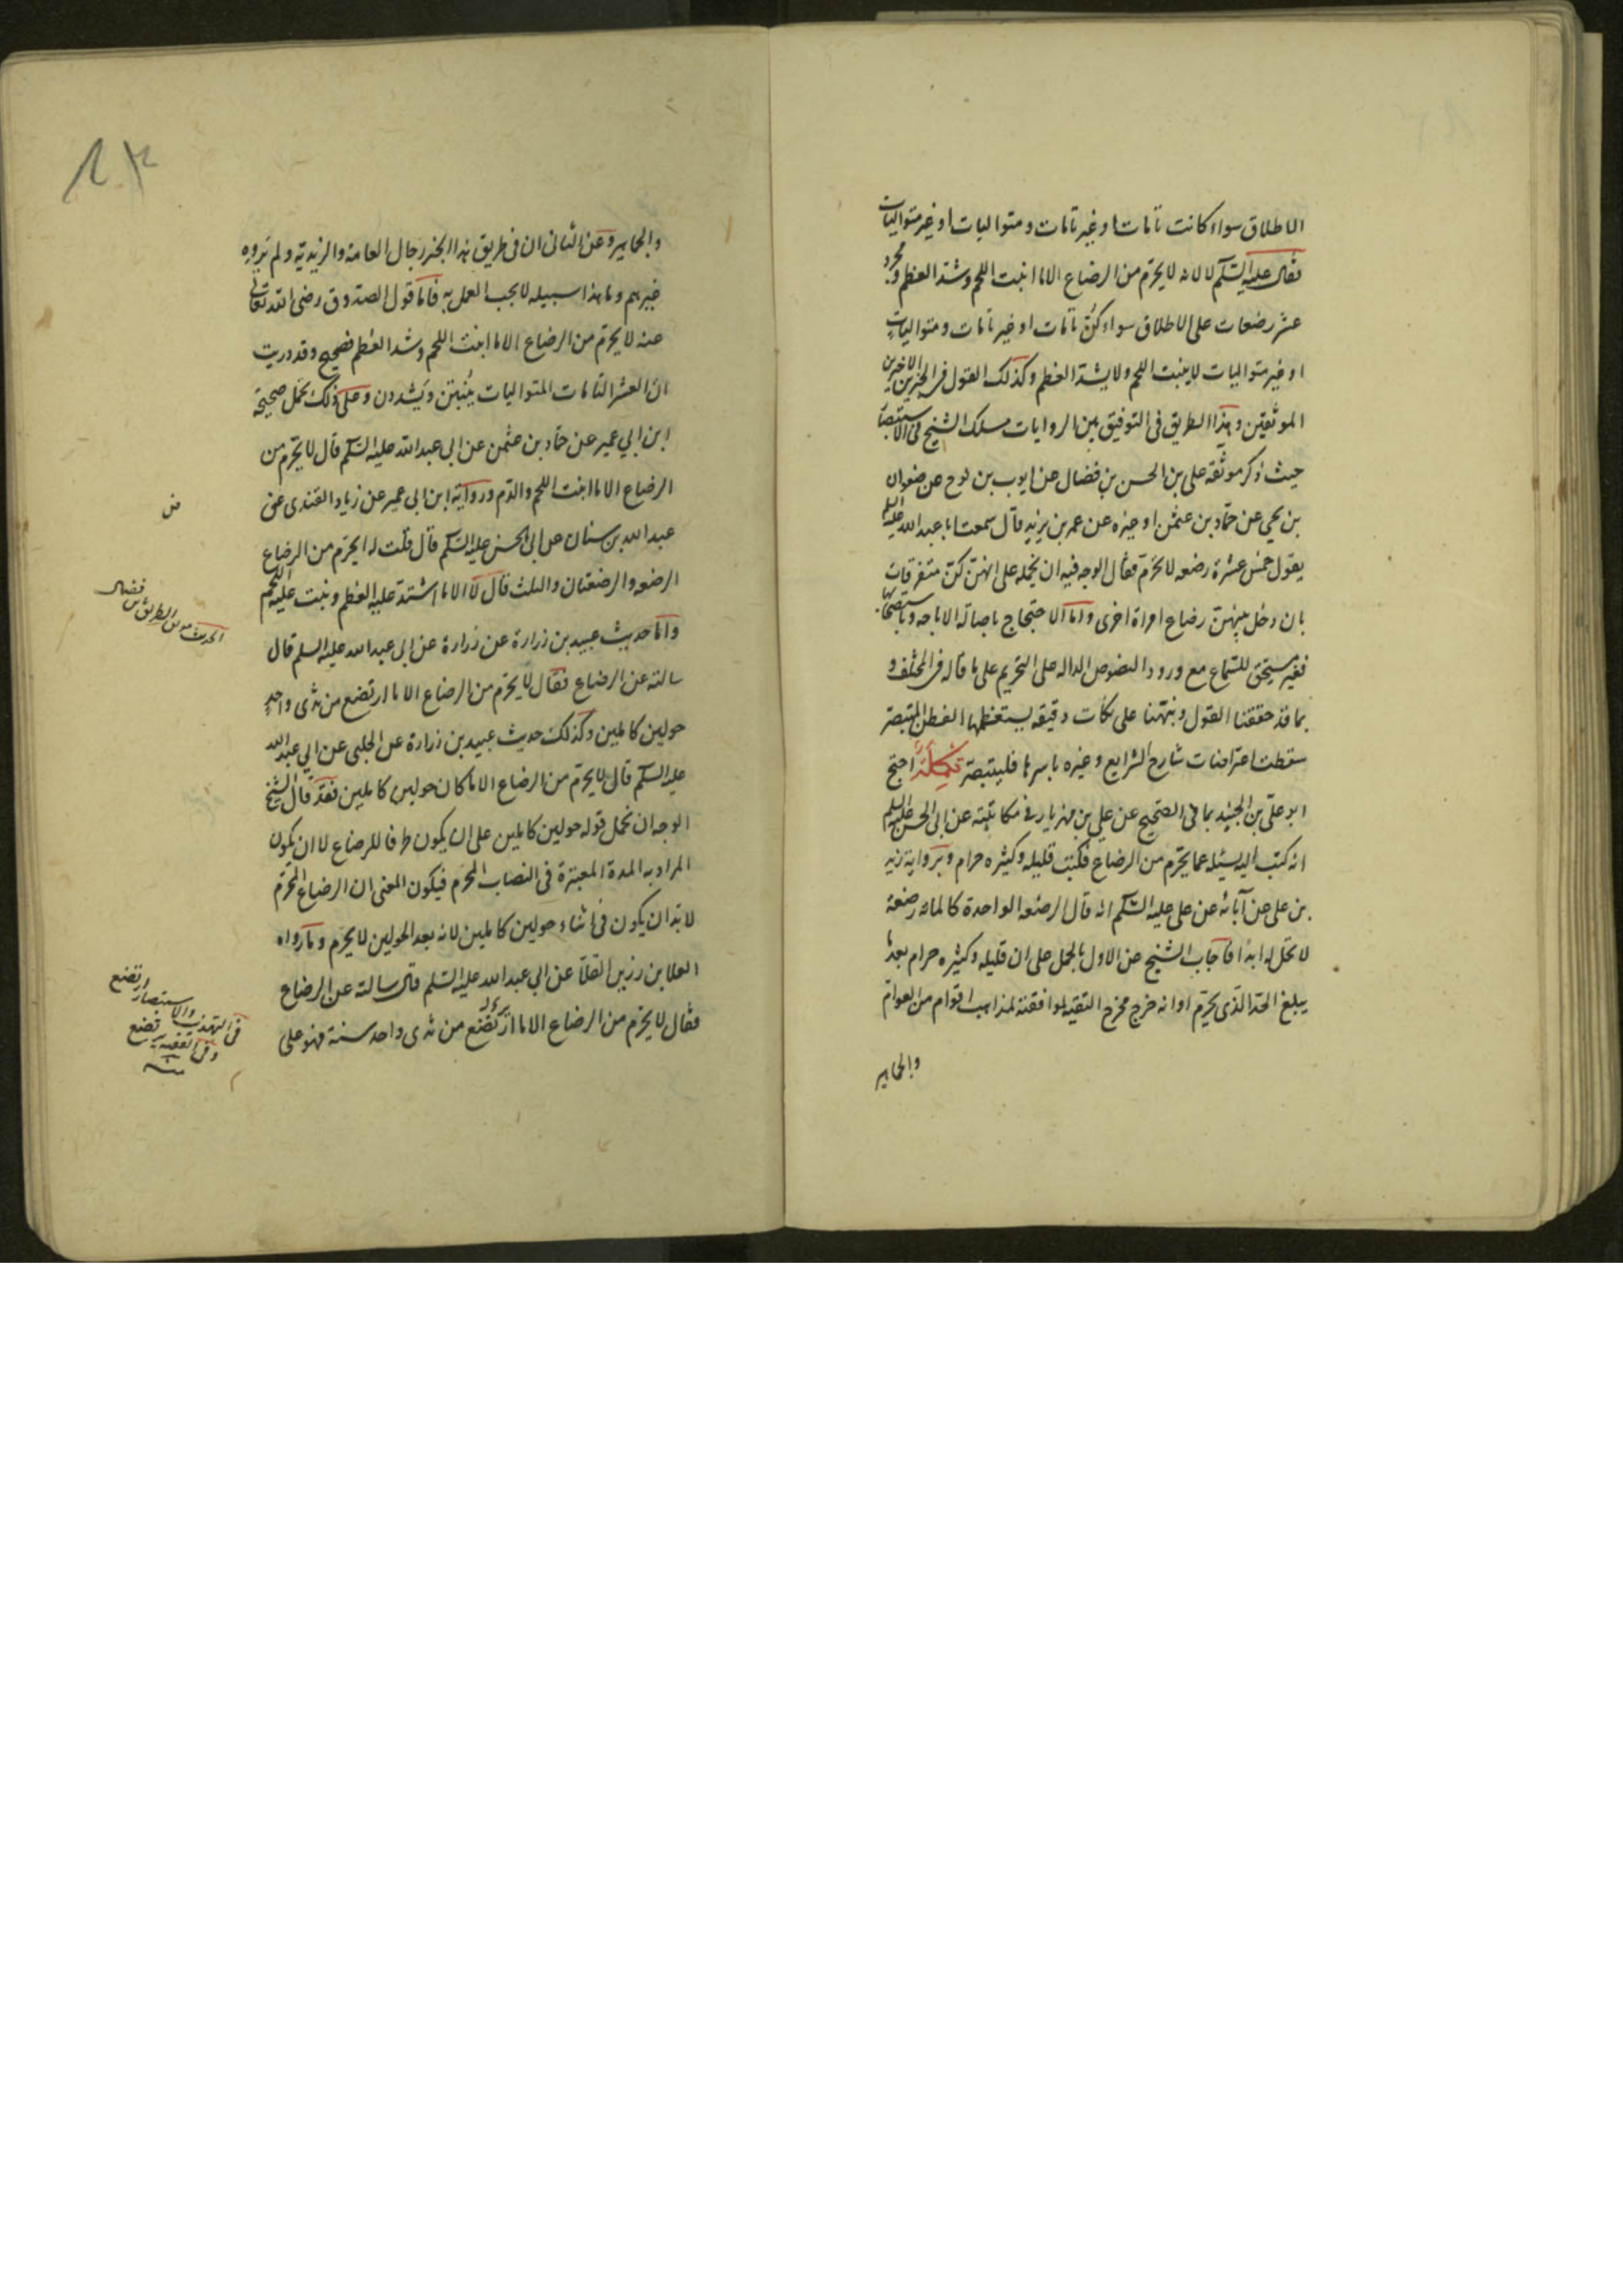 الاطلاق سواء كانت تامات او غير تامات ومتواليات او غير متواليات
فقال عليه السلم لا لانه لا يحرم من الرضاع الا ما انبت اللحم وشد العظم ومجرد
عشر رضعات على الاطلاق سواء كن تامات او غير تامات ومتواليات
او غير متواليات لا ينبت اللحم ولا يشد العظم وكذلك القول في الخبرين الاخرين
الموثقين وهذا الطريق في التوفيق بين الروايات مسلك الشيخ في الاستبصار
حيث ذكر موثقة علي بن الحسن بن فضال عن ايوب بن نوح عن صفوان
بن يحيى عن حماد بن عثمن او غيره عن عمر بن يزيد قال سمعت ابا عبد الله عليه السلم
يقول خمس عشرة رضعه لا تحرم فقال الوجه فيه ان نحمله على انهن كن متفرقات
بان دخل بينهن رضاع امراة اخرى واما الاحتجاج باصالة الاباحه وباستصحابها
فغير مستحق للسماع مع ورود النصوص الداله على التحريم على ما قاله في المختلف و
بما قد حققنا القول ونبهنا على نكات دقيقه يستعظمها الفطن المتبصر
سقطت اعتراضات شارح الشرايع وغيره باسرها فليتبصر تكملة احتج
ابو علي بن الجنيد بما في الصحيح عن علي بن مهزيار في مكاتبته عن ابي الحسن عليه السلم
انه كتب اليه يسئله عما يحرم من الرضاع فكتب قليله وكثيره حرام وبرواية زيد
بن علي عن آبائه عن علي عليه السلم انه قال الرضعه الواحدة كالمائه رضعة
لا تحل له ابدا فاجاب الشيخ عن الاول بالحمل على ان قليله وكثيره حرام بعد ما
يبلغ الحد الذي يحرم او انه خرج مخرج التقيه لموافقته لمذاهب اقوام من العوام
والجماهير
والجماهير وعن الثاني ان في طريق هذا الخبر رجال العامة والزيدية ولم يروه
غيرهم وما هذا سبيله لا يجب العمل به فاما قول الصدوق رضي الله تعالى
عنه لا يحرم من الرضاع الا ما انبت اللحم وشد العظم فصحيح وقد دريت
ان العشر التامات المتواليات ينبتن ويشددن وعلى ذلك يحمل صحيحة
ابن ابي عمير عن حماد بن عثمن عن ابي عبد الله عليه السلم قال لا يحرم من
الرضاع الا ما انبت اللحم والدم ورواية ابن ابي عمير عن زياد القندي عن
عبد الله بن سنان عن ابي الحسن عليه السلم قال قلت له يحرم من الرضاع
الرضعه والرضعتان والثلث قال لا الا ما اشتد عليه العظم ونبت عليه اللحم
واما حديث عبيد بن زرارة عن زرارة عن ابي عبد الله عليه السلم قال
سالته عن الرضاع فقال لا يحرم من الرضاع الا ما ارتضع من ثدى واحد
حولين كاملين وكذلك حديث عبيد بن زرارة عن الحلبي عن ابي عبد الله
عليه السلم قال لا يحرم من الرضاع الا ما كان حولين كاملين فقد قال الشيخ
الوجه ان نحمل قوله حولين كاملين على ان يكون ظرفا للرضاع لا ان يكون
المراد به المدة المعتبرة في النصاب المحرم فيكون المعنى ان الرضاع المحرم
لا بد ان يكون في اثناء حولين كاملين لانه بعد الحولين لا يحرم وما رواه
العلا بن رزين القلا عن ابي عبد الله عليه السلم قال سالته عن الرضاع
فقال لا يحرم من الرضاع الا ما ارتضع من ثدى واحد سنة فهو على
الحديث من الطريق بن فضال
في التهذيب والاستبصار ارتضع
وفي الفقيه يرتضع